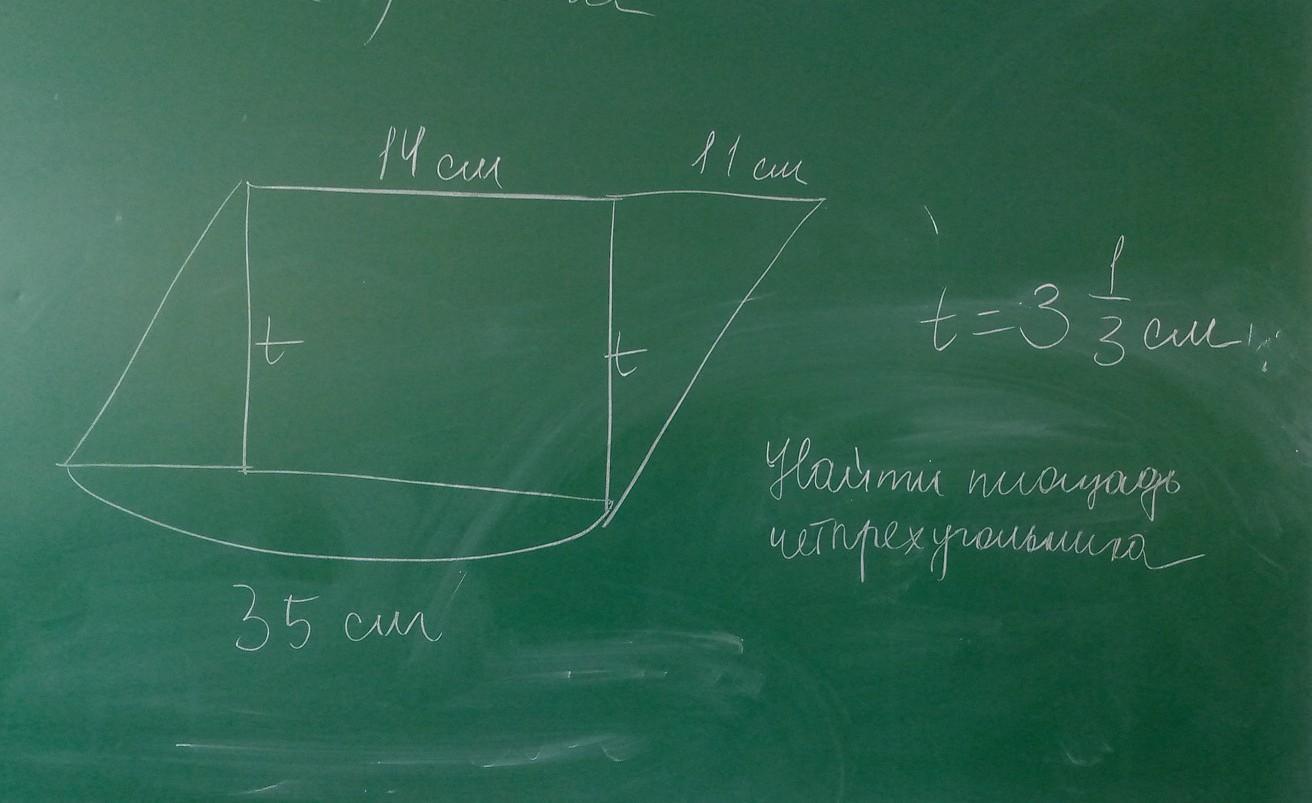 14 см 11 см
t t
t = 3 1/3 см
Найти площадь
четырехугольника
35 см